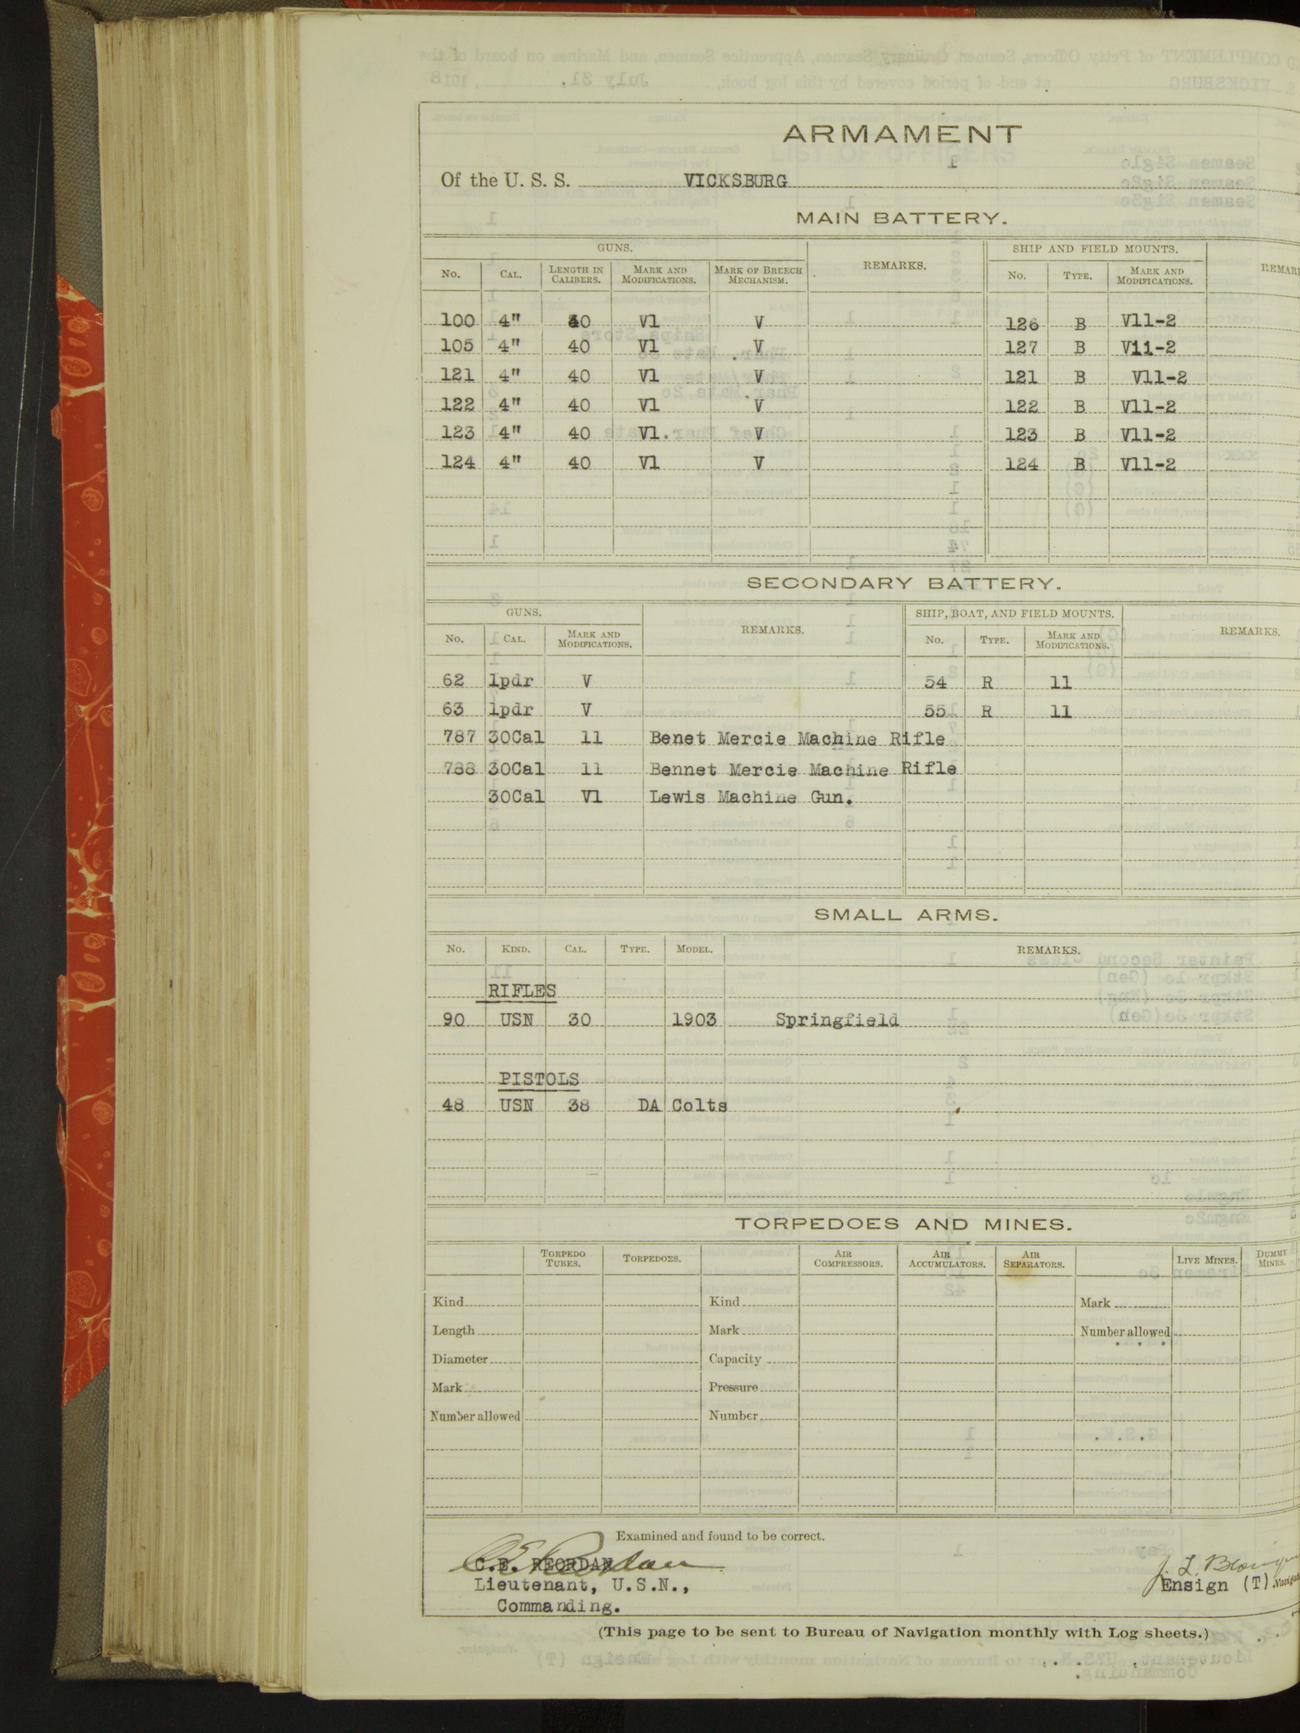 ARMAMENT
Of the U. S. S. VICKSBURG
MAIN BATTERY.
GUNS. REMARKS. SHIP AND FIELD MOUNTS.
No. CAL. LENGTH IN CALIBERS. MARK AND MODIFICATIONS. MARK OF BREECH MECHANISM. No. TYPE. MARK AND MODIFICATIONS.
100 4" 40 V1 V 126 B V11-2
105 4" 40 V1 V 127 B V11-2
121 4" 40 V1 V 121 B V11-2
122 4" 40 V1 V 122 B V11-2
123 4" 40 V1. V 123 B V11-2
124 4" 40 V1 V 124 B V11-2
SECONDARY BATTERY.
GUNS. REMARKS. SHIP, BOAT, AND FIELD MOUNTS. REMARKS.
No. CAL. MARK AND MODIFICATIONS. No. TYPE. MARK AND MODIFICATIONS.
62 1pdr V 54 R 11
63 1pdr V 55 R 11
787 30Cal 11 Benet Mercie Machine Rifle
788 30Cal 11 Bennet Mercie Machine Rifle
30Cal V1 Lewis Machine Gun.
SMALL ARMS.
No. KIND. CAL. TYPE. MODEL. REMARKS.
RIFLES
90 USN 30 1903 Springfield
PISTOLS
48 USN 38 DA Colts
TORPEDOES AND MINES.
TORPEDO TUBES. TORPEDOES. AIR COMPRESSORS. AIR ACCUMULATORS. AIR SEPARATORS. LIVE MINES. DUMMY MINES.
Kind Kind Mark
Length Mark Number allowed
Diameter Capacity
Mark Pressure
Number allowed Number
Examined and found to be correct.
C.E. REORDAN
Lieutenant, U.S.N., Ensign (T).
Commanding.
(This page to be sent to Bureau of Navigation monthly with Log sheets.)